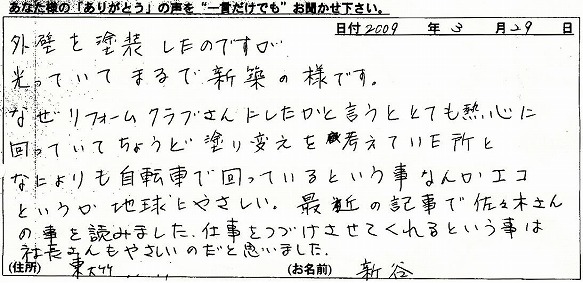 あなた様の「ありがとう」の声を“一言だけでも”お聞かせ下さい。
日付2009年3月29日
外壁を塗装したのですが
光っていてまるで新築の様です。
なぜリフォームクラブさんにしたかと言うととても熱心に
回っていてちょうど塗り変えを考えていた所と
なによりも自転車で回っているという事なんかエコ
というか地球にやさしい。最近の記事で佐々木さん
の事を読みました。仕事をつづけさせてくれるという事は
社長さんもやさしいのだと思いました。
(住所) 東大竹 (お名前) 新谷